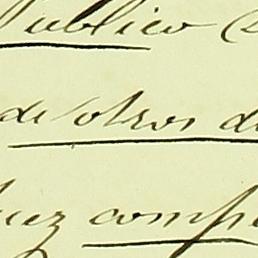 Publico
de otros d
uez comp